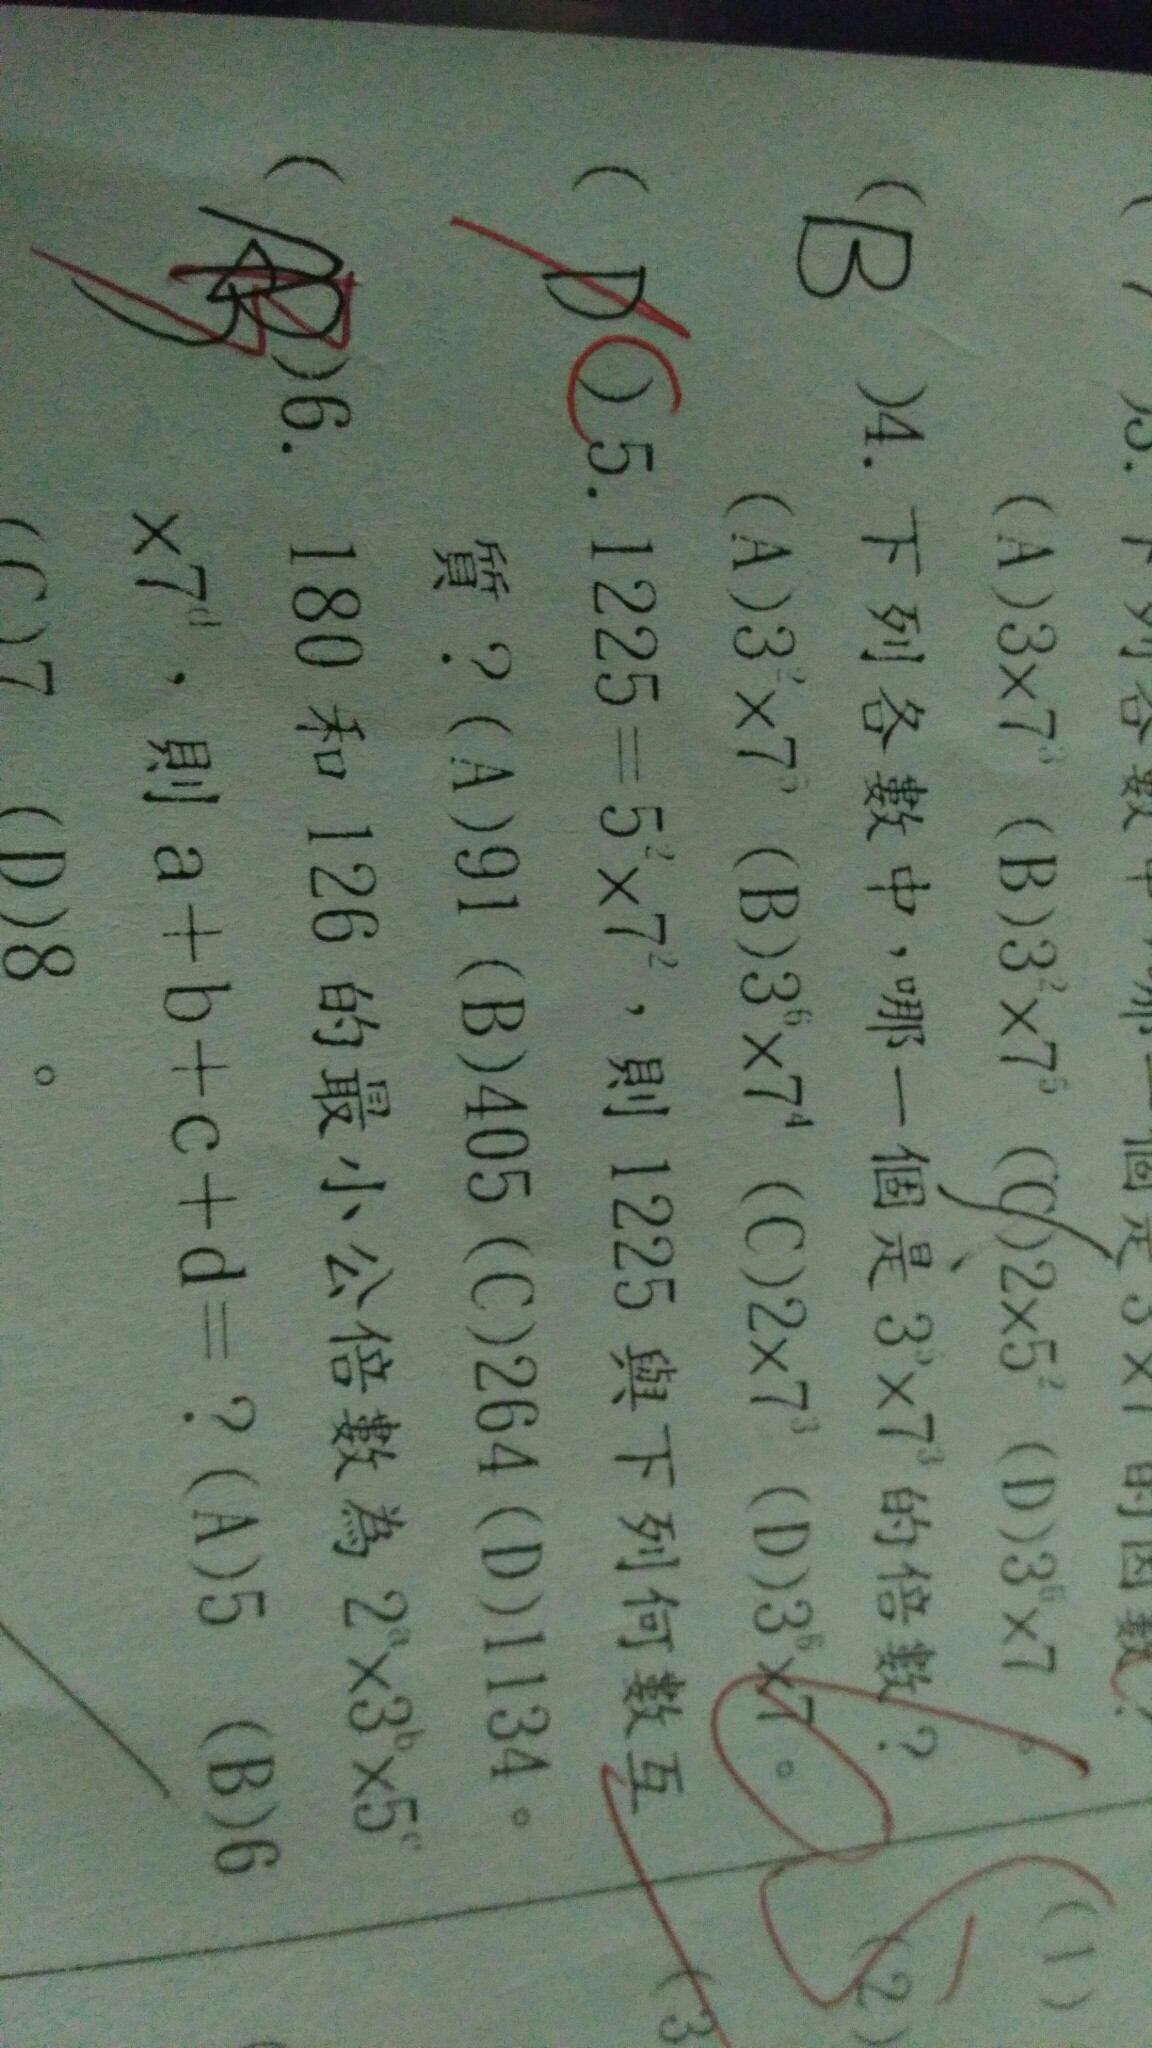 )3. 下列各數中,哪一個是 3×7 的因數?
(A)3×7³ (B)3²×7⁵ (C)2×5² (D)3⁶×7。
(B )4. 下列各數中,哪一個是 3⁵×7³ 的倍數?
(A)3²×7⁵ (B)3⁶×7⁴ (C)2×7³ (D)3⁶×7。
( D C )5. 1225=5²×7²,則 1225 與下列何數互
質?(A)91 (B)405 (C)264 (D)1134。
( B )6. 180 和 126 的最小公倍數為 2ᵃ×3ᵇ×5ᶜ
×7ᵈ,則 a+b+c+d=?(A)5 (B)6
(C)7 (D)8 。
(1)
(2)
(3